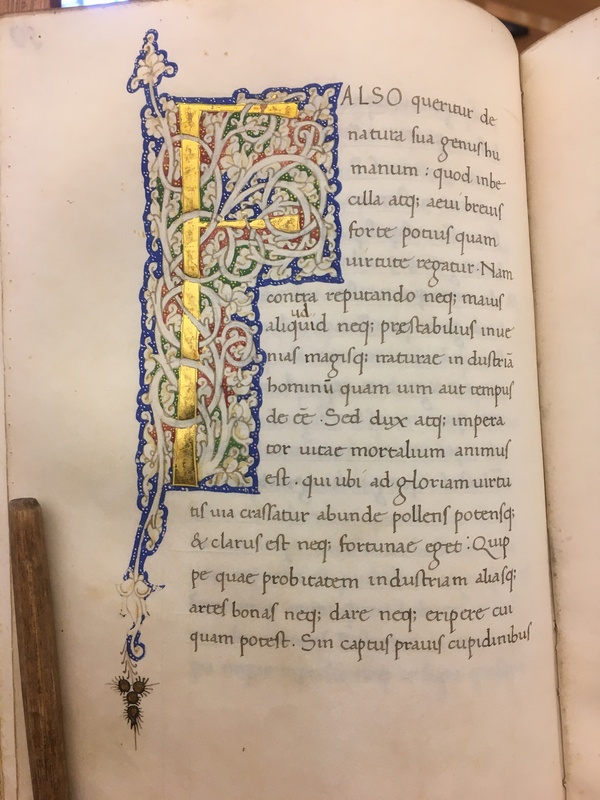 FALSO queritur de
natura sua genus hu
manum : quod inbe
cilla atq; aeui breuis
forte potius quam
uirtute regatur. Nam
contra reputando neq; maius
ud
aliquid neq; pręstabilius inue
nias magisq; naturae industriā
hominū quam uim aut tempus
de ēē. Sed dux atq; impera
tor uitae mortalium animus
est. qui ubi ad gloriam uirtu
tis uia crassatur abunde pollens potensq;
& clarus est neq; fortunae eget : Quip
pe quae probitatem industriam aliasq;
artes bonas neq; dare neq; eripere cui
quam potest. Sin captus prauis cupidinibus